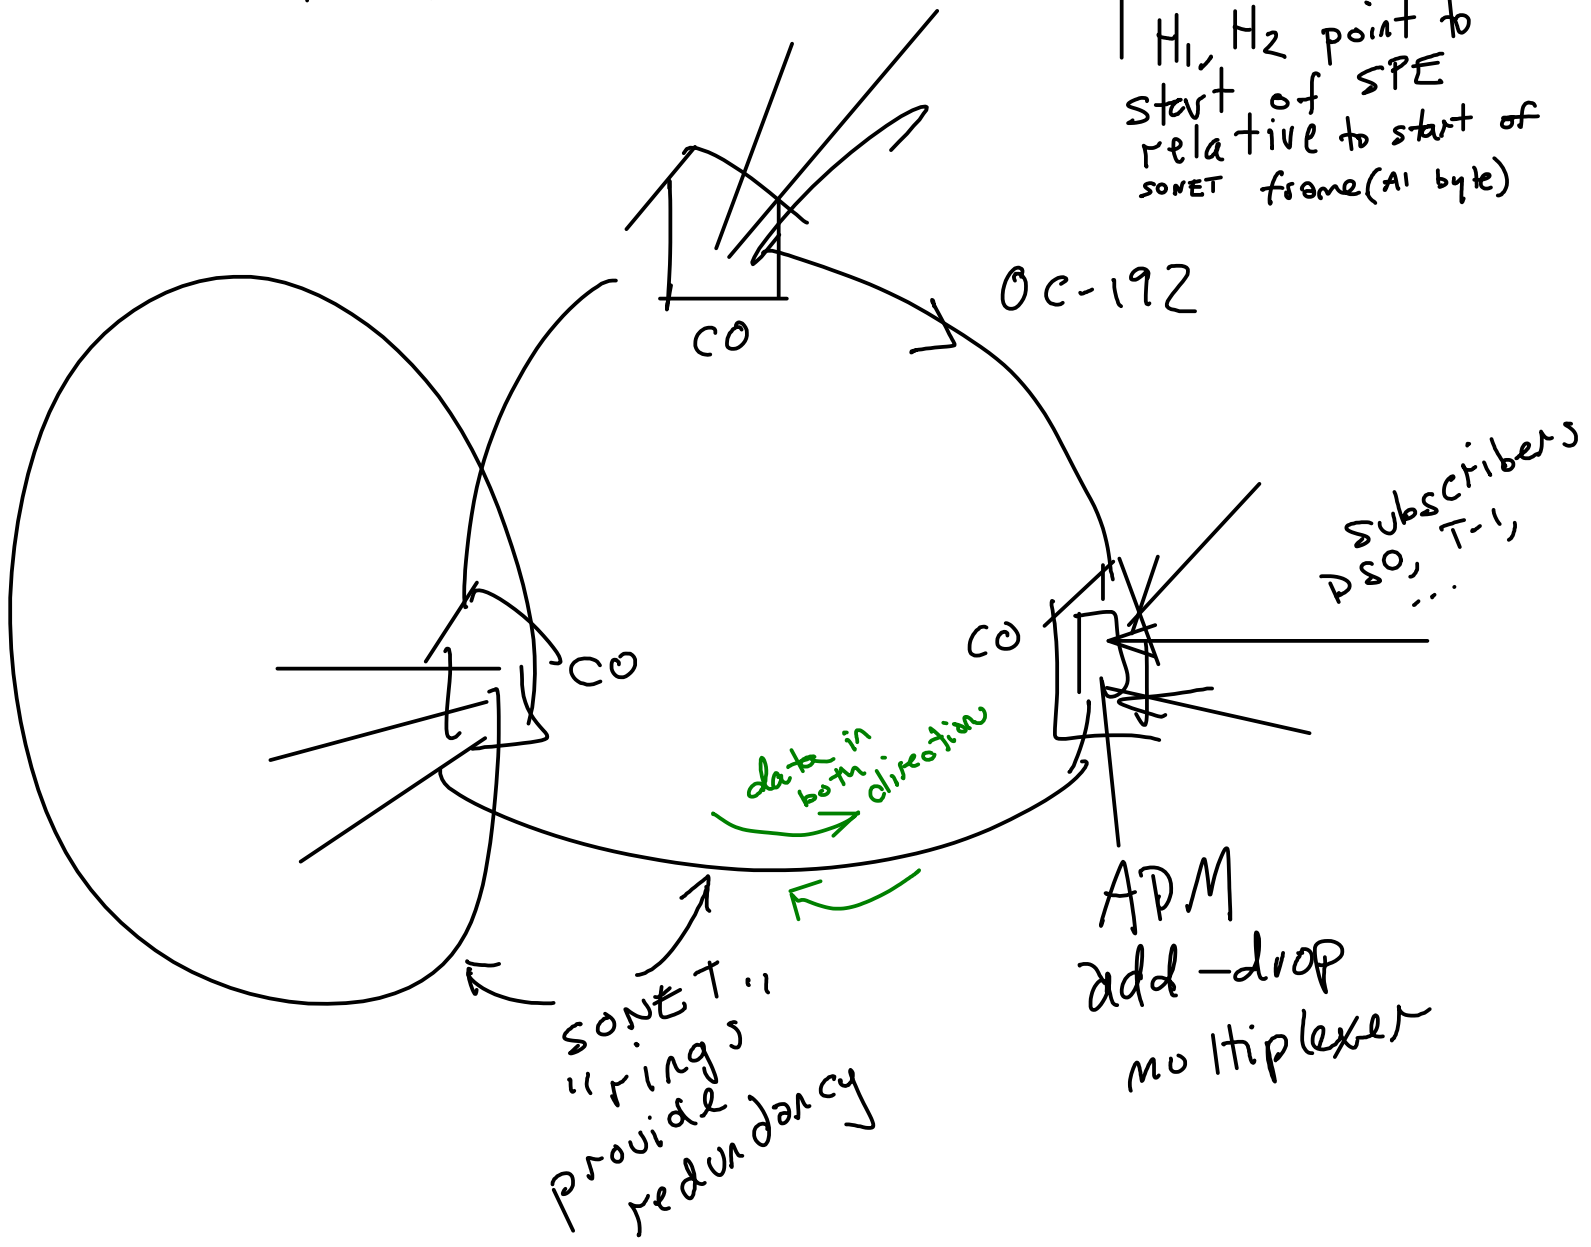 H1, H2 point to
start of SPE
relative to start of
SONET frame (A1 byte)
OC-192
CO
subscribers
DS0, T-1,
...
CO
CO
data in
both
direction
ADM
add-drop
moltiplexer
SONET "
"rings
provide
redundancy